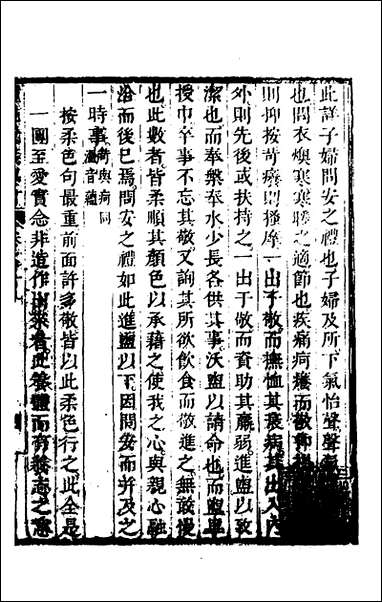 此詳子婦問安之禮也子婦及所下氣怡聲聲
也問衣燠寒寒煖之適節也疾痛疴癢而敬抑搔
則抑按苛癢則搔摩一出于敬而撫恤其衰病其出入內
外則先後或扶持之一出于敬而資助其羸弱進盥以致
潔也而奉槃奉水少長各供其事沃盥以請命也而盥畢
授巾卒事不忘其敬又詢其所欲飲食而敬進之無敢慢
也此數者皆柔順其顏色以承藉之使我之心與親心融
洽而後已焉問安之禮如此進盥以下因問安而并及之
一時事苛與疴同溫音蘊
按柔色句最重前面許多敬皆以此柔色行之此全是
一團至愛實念非造作出來者此養體而有養志之意